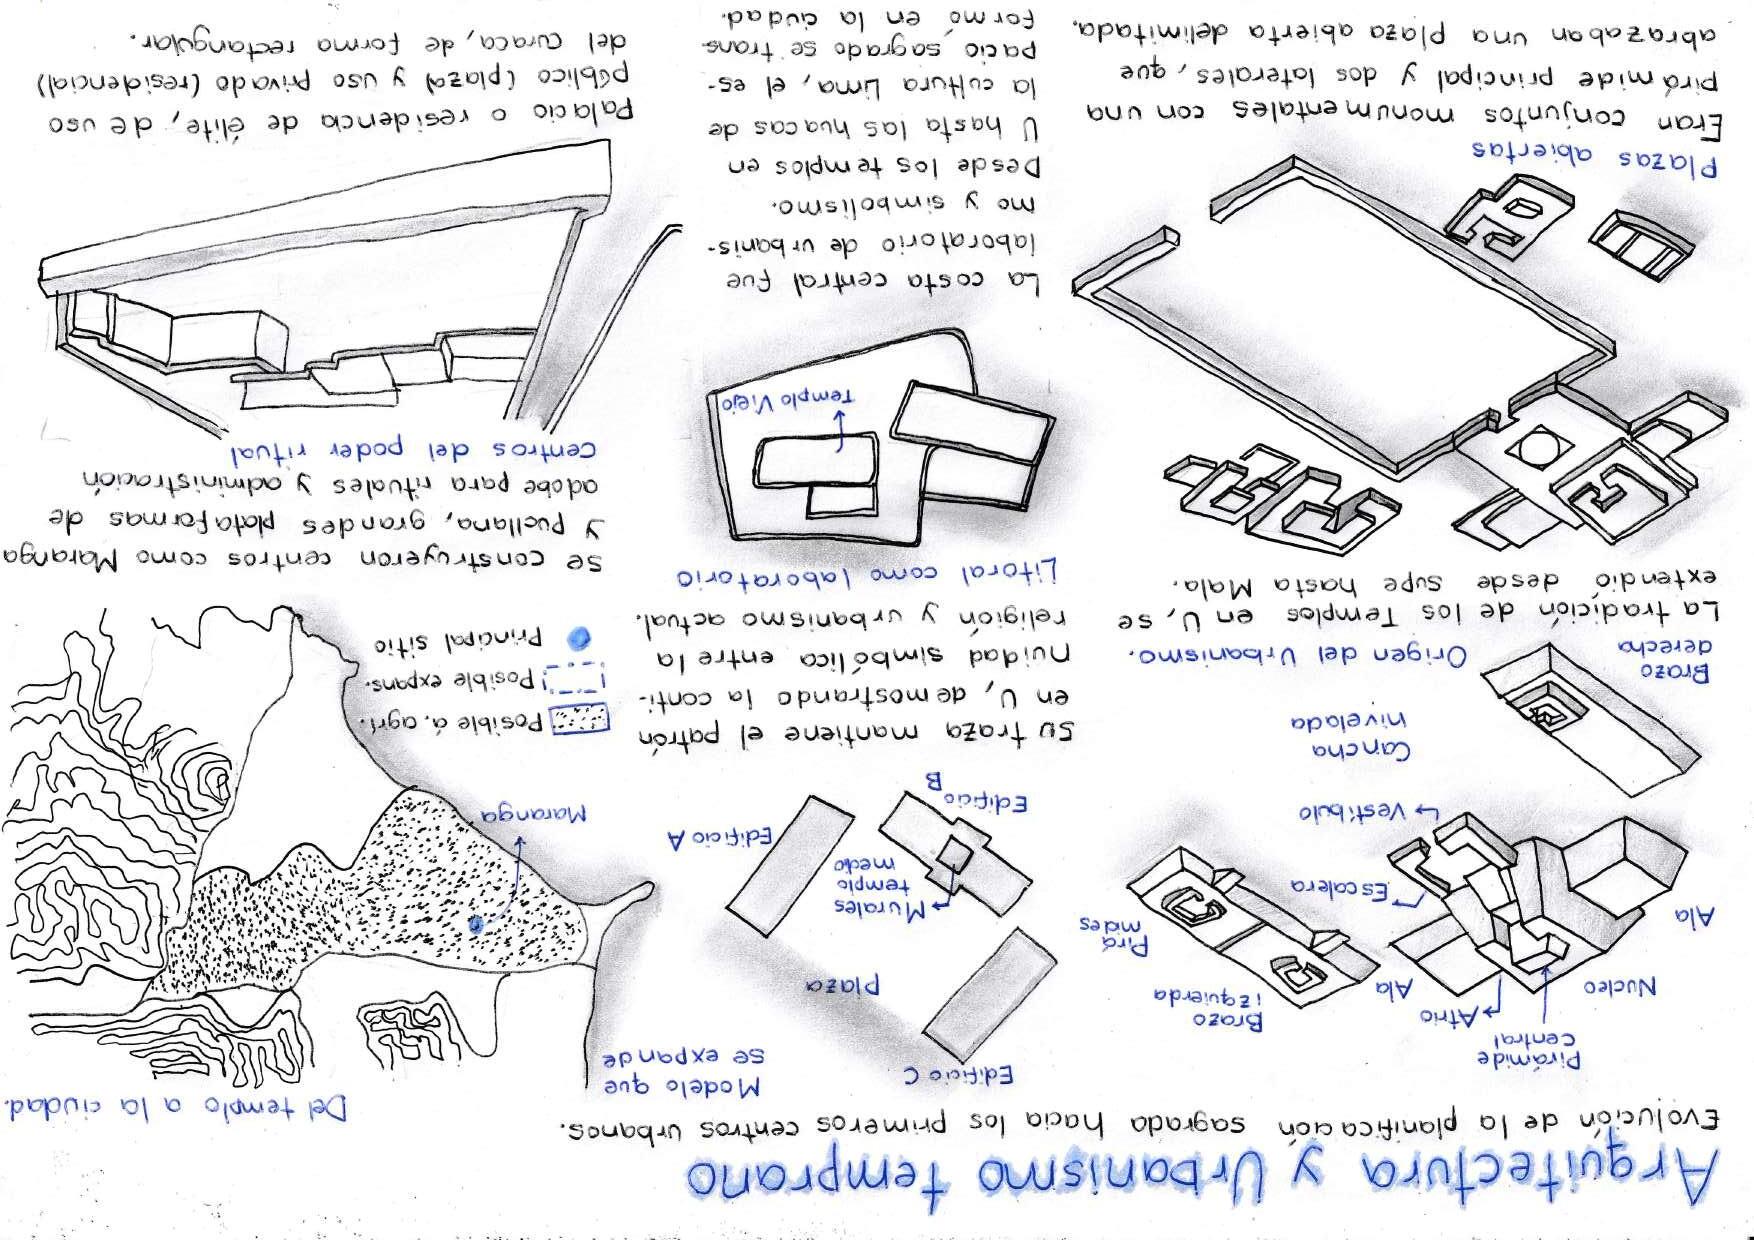 Arquitectura y Urbanismo temprano
Evolución de la planificación sagrada hacia los primeros centros urbanos.
Pirámide
central
Atrio
Nucleo
Ala
Ala
Escalera
Vestíbulo
Brazo
izquierda
Pirá
mides
Cancha
nivelada
Brazo
derecha
Origen del Urbanismo.
La tradición de los Templos en U, se
extendió desde Supe hasta Mala.
Plazas abiertas
Eran conjuntos monumentales con una
pirámide principal y dos laterales, que
abrazaban una plaza abierta delimitada.
Modelo que
se expande
Edificio C
Plaza
Murales
templo
medio
Edificio A
Edificio
B
Su traza mantiene el patrón
en U, demostrando la conti-
nuidad simbólica entre la
religión y urbanismo actual.
Litoral como laboratorio
Templo Viejo
La costa central fue
laboratorio de urbanis-
mo y simbolismo.
Desde los templos en
U hasta las huacas de
la cultura Lima, el es-
pacio sagrado se trans-
formó en la ciudad.
Del templo a la ciudad.
Maranga
Posible á. agrí.
Posible expans.
Principal sitio
se construyeron centros como Maranga
y Pucllana, grandes plataformas de
adobe para rituales y administración
Centros del poder ritual
Palacio o residencia de élite, de uso
público (plaza) y uso privado (residencial)
del curaca, de forma rectangular.